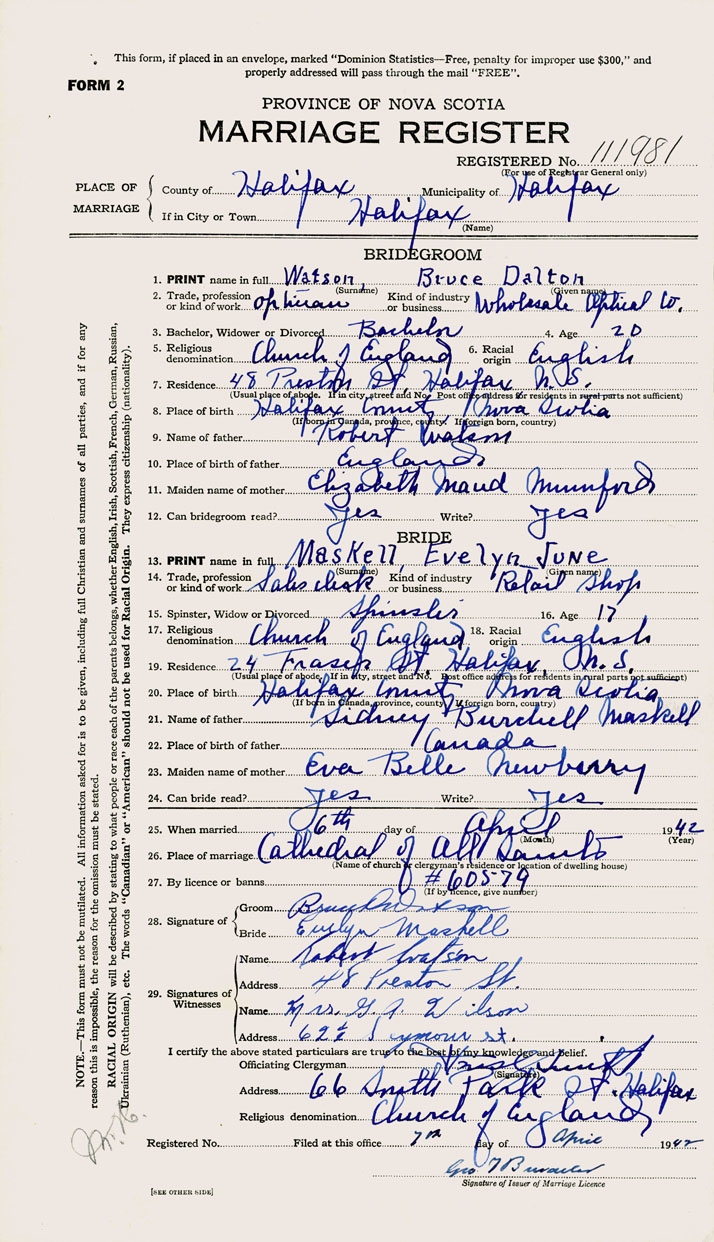 This form, if placed in an envelope, marked "Dominion Statistics—Free, penalty for improper use $300," and
properly addressed will pass through the mail "FREE".
FORM 2
PROVINCE OF NOVA SCOTIA
MARRIAGE REGISTER
REGISTERED No. 111981
(For use of Registrar General only)
PLACE OF MARRIAGE
County of Halifax Municipality of Halifax
If in City or Town Halifax
(Name)
BRIDEGROOM
1. PRINT name in full Watson, Bruce Dalton
(Surname) (Given name)
2. Trade, profession or kind of work optician Kind of industry or business Wholesale Optical Co.
3. Bachelor, Widower or Divorced Bachelor 4. Age 20
5. Religious denomination Church of England 6. Racial origin English
7. Residence 48 Preston St, Halifax N.S.
(Usual place of abode. If in city, street and No. Post office address for residents in rural parts not sufficient)
8. Place of birth Halifax County, Nova Scotia
(If born in Canada, province, county. If foreign born, country)
9. Name of father Robert Watson
10. Place of birth of father England
11. Maiden name of mother Elizabeth Maud Mumford
12. Can bridegroom read? Yes Write? Yes
BRIDE
13. PRINT name in full Maskell, Evelyn June
(Surname) (Given name)
14. Trade, profession or kind of work Sales clerk Kind of industry or business Retail Shop
15. Spinster, Widow or Divorced Spinster 16. Age 17
17. Religious denomination Church of England 18. Racial origin English
19. Residence 24 Fraser St, Halifax, N.S.
(Usual place of abode. If in city, street and No. Post office address for residents in rural parts not sufficient)
20. Place of birth Halifax County, Nova Scotia
(If born in Canada, province, county. If foreign born, country)
21. Name of father Sidney Burchell Maskell
22. Place of birth of father Canada
23. Maiden name of mother Eva Belle Newberry
24. Can bride read? Yes Write? Yes
25. When married 6th day of April 1942
(Month) (Year)
26. Place of marriage Cathedral of All Saints
(Name of church or clergyman's residence or location of dwelling house)
27. By licence or banns # 60579
(If by licence, give number)
28. Signature of
Groom Bruce D Watson
Bride Evelyn Maskell
29. Signatures of Witnesses
Name Robert Watson
Address 48 Preston St.
Name Mrs. G. J. Wilson
Address 62½ Seymour st.
I certify the above stated particulars are true to the best of my knowledge and belief.
Officiating Clergyman
(Signature)
Address 66 South Park St. Halifax
Religious denomination Church of England
Registered No. Filed at this office 7th day of April 1942
Geo
Signature of Issuer of Marriage Licence
[SEE OTHER SIDE]
NOTE.—This form must not be mutilated. All information asked for is to be given, including full Christian and surnames of all parties, and if for any
reason this is impossible, the reason for the omission must be stated.
RACIAL ORIGIN will be described by stating to what people or race each of the parents belongs, whether English, Irish, Scottish, French, German, Russian,
Ukrainian (Ruthenian), etc. The words "Canadian" or "American" should not be used for Racial Origin. They express citizenship (nationality).